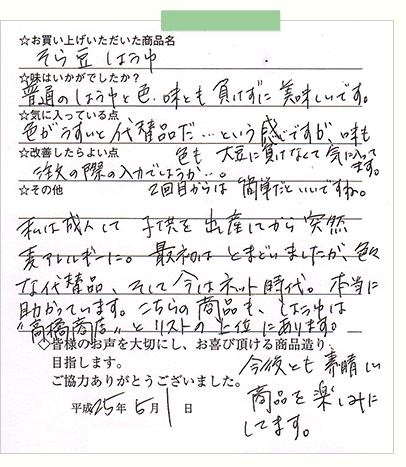 ☆お買い上げいただいた商品名
そら豆 しょうゆ
☆味はいかがでしたか？
普通のしょうゆと色、味とも 負けずに 美味しいです。
☆気に入っている点
色がうすいと代替品だ…という感ですが、味も
色も 大豆に負けなくて 気に入ってます。
☆改善したらよい点
注文の際の入力でしょうか…。
2回目からは 簡単だといいですね。
☆その他
私は成人して 子供を 出産してから 突然
麦アレルギーに。 最初は とまどいましたが、色々
な代替品、そして 今はネット時代。本当に
助かっています。こちらの 商品も、しょうゆは
"高橋商店" と リストの 上位に あります。
◇皆様のお声を大切にし、お喜び頂ける商品造り、
目指します。
ご協力ありがとうございました。
今後とも 素晴しい
商品を 楽しみに
してます。
平成25年5月1日